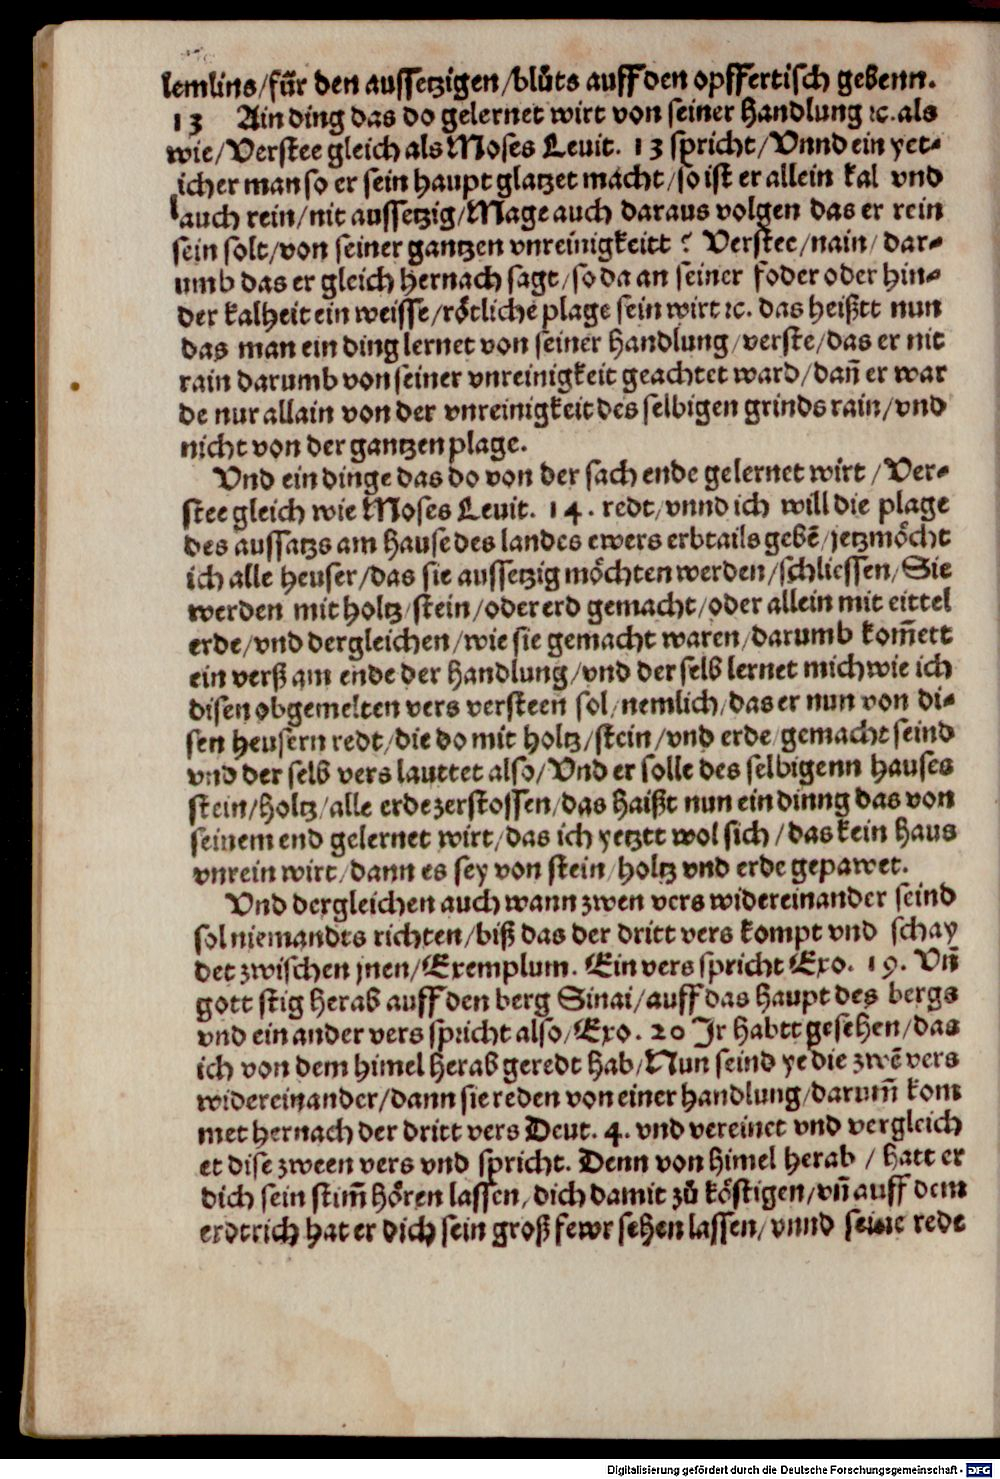 lemlins/für den aussetzigen/blůts auff den opffertisch gebenn.
13 Ain ding das do gelernet wirt von seiner handlung ꝛc. als
wie/Verstee gleich als Moses Leuit. 13 spricht/Vnnd ein yet-
licher man so er sein haupt glatzet macht/so ist er allein kal vnd
auch rein/nit aussetzig/Mage auch daraus volgen das er rein
sein solt/von seiner gantzen vnreinigkeitt? Verstee/nain/dar-
umb das er gleich hernach sagt/so da an seiner foder oder hin-
der kalheit ein weisse/rötliche plage sein wirt ꝛc. das heißtt nun
das man ein ding lernet von seiner handlung/verste/das er nit
rain darumb von seiner vnreinigkeit geachtet ward/dañ er war
de nur allain von der vnreinigkeit des selbigen grinds rain/vnd
nicht von der gantzen plage.
Vnd ein dinge das do von der sach ende gelernet wirt/Ver-
stee gleich wie Moses Leuit. 14. redt/vnnd ich will die plage
des aussatzs am hause des landes ewers erbtails gebẽ/jetz möcht
ich alle heuser/das sie aussetzig möchten werden/schliessen/Sie
werden mit holtz/stein/oder erd gemacht/oder allein mit eittel
erde/vnd dergleichen/wie sie gemacht waren/darumb kom̃ett
ein verß am ende der handlung/vnd der selb lernet mich wie ich
disen obgemelten vers versteen sol/nemlich/das er nun von di-
sen heusern redt/die do mit holtz/stein/vnd erde/gemacht seind
vnd der selb vers lauttet also/Vnd er solle des selbigenn hauses
stein/holtz/alle erde zerstossen/das haißt nun ein dinng das von
seinem end gelernet wirt/das ich yetztt wol sich/das kein haus
vnrein wirt/dann es sey von stein/holtz vnd erde gepawet.
Vnd dergleichen auch wann zwen vers widereinander seind
sol niemandts richten/biß das der dritt vers kompt vnd schay
det zwischen jnen/Exemplum. Ein vers spricht Exo. 19. Vñ
gott stig herab auff den berg Sinai/auff das haupt des bergs
vnd ein ander vers spricht also/Exo. 20 Jr habtt gesehen/das
ich von dem himel herab geredt hab/Nun seind ye die zwẽ vers
widereinander/dann sie reden von einer handlung/darum̃ kom
met hernach der dritt vers Deut. 4. vnd vereinet vnd vergleich
et dise zween vers vnd spricht. Denn von himel herab/hatt er
dich sein stim̃ hören lassen/dich damit zů köstigen/vñ auff dem
erdtrich hat er dich sein groß fewr sehen lassen/vnnd seine rede
Digitalisierung gefördert durch die Deutsche Forschungsgemeinschaft - DFG